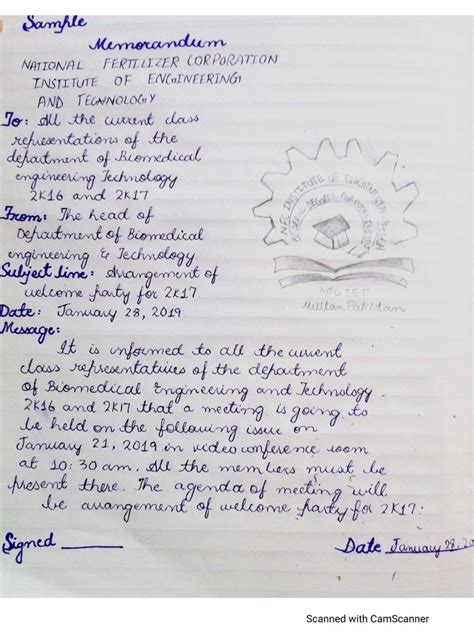 Sample
Memorandum
NATIONAL FERTILIZER CORPORATION
INSTITUTE OF ENGINEERING
AND TECHNOLOGY
To: All the current class
representations of the
department of Biomedical
engineering Technology
2K16 and 2K17
From: The head of
Department of Biomedical
engineering & Technology
Subject line: Arrangement of
welcome party for 2K17
Date: January 28, 2019
Message:
It is informed to all the current
class representatives of the department
of Biomedical Engineering and Technology
2K16 and 2K17 that a meeting is going to
be held on the following issue on
January 21, 2019 in video conference room
at 10:30 am. All the members must be
present there. The agenda of meeting will
be arrangement of welcome party for 2K17:
Signed
Date January 28, 20
NFC INSTITUTE OF
NFC IET
Multan Pakistan
Scanned with CamScanner